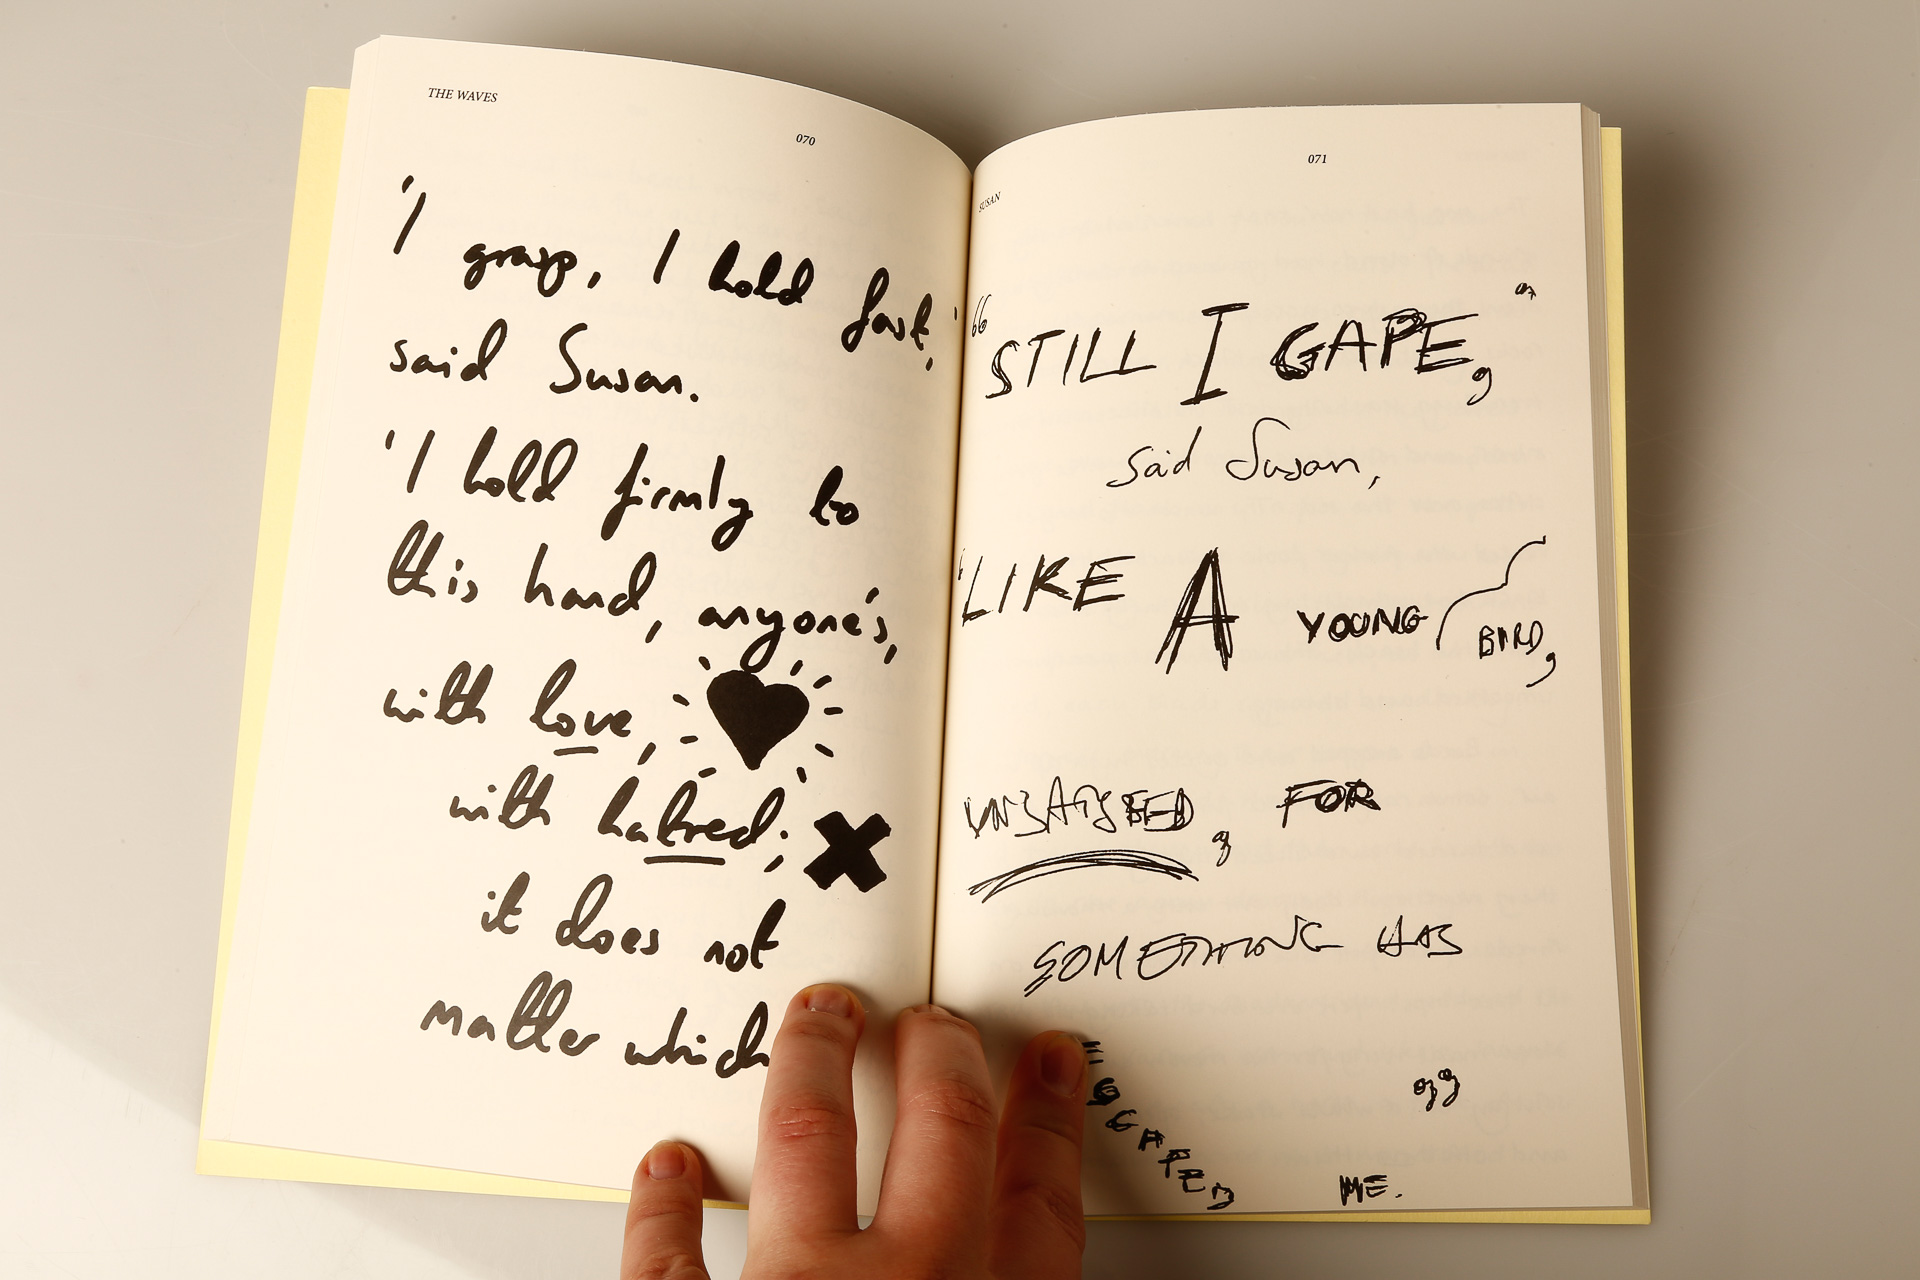 THE WAVES
070
'I
grasp, I hold fast,'
said Susan.
'I hold firmly to
this hand, anyone's,
with love,
with hatred;
it does not
matter which
071
SUSAN
“STILL I GAPE,”
said Susan,
‘LIKE A YOUNG BIRD,
UNSATISFIED, FOR
SOMETHING HAS
ESCAPED ME.”